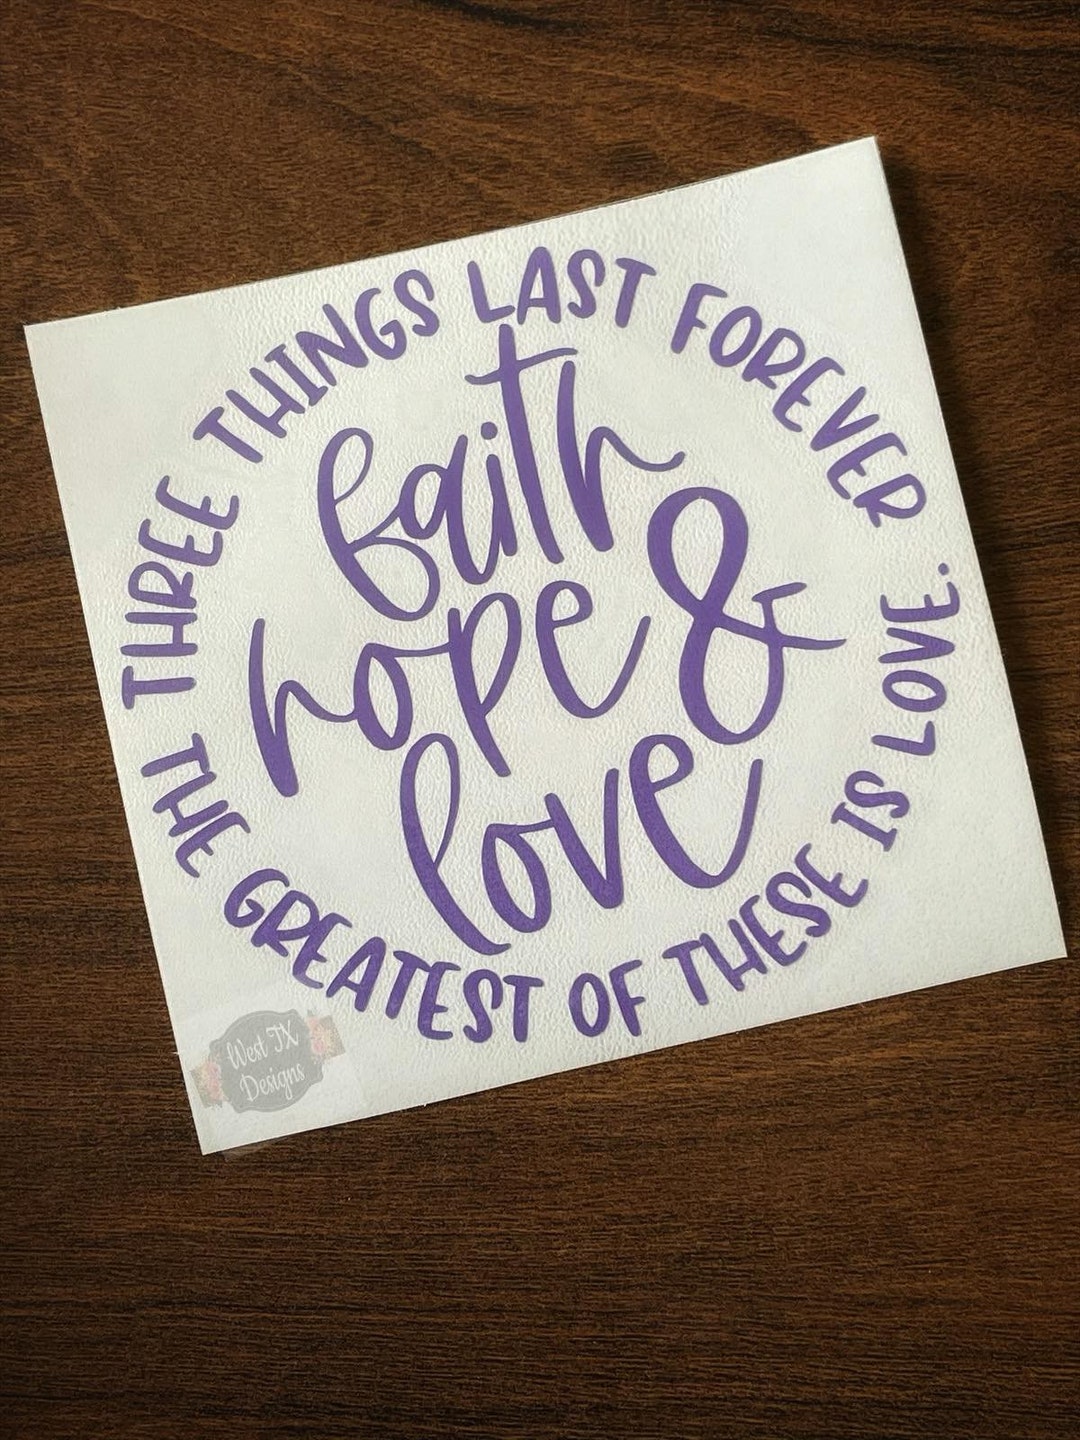 THREE THINGS LAST FOREVER
faith
hope &
love
THE GREATEST OF THESE IS LOVE.
West TX
Designs